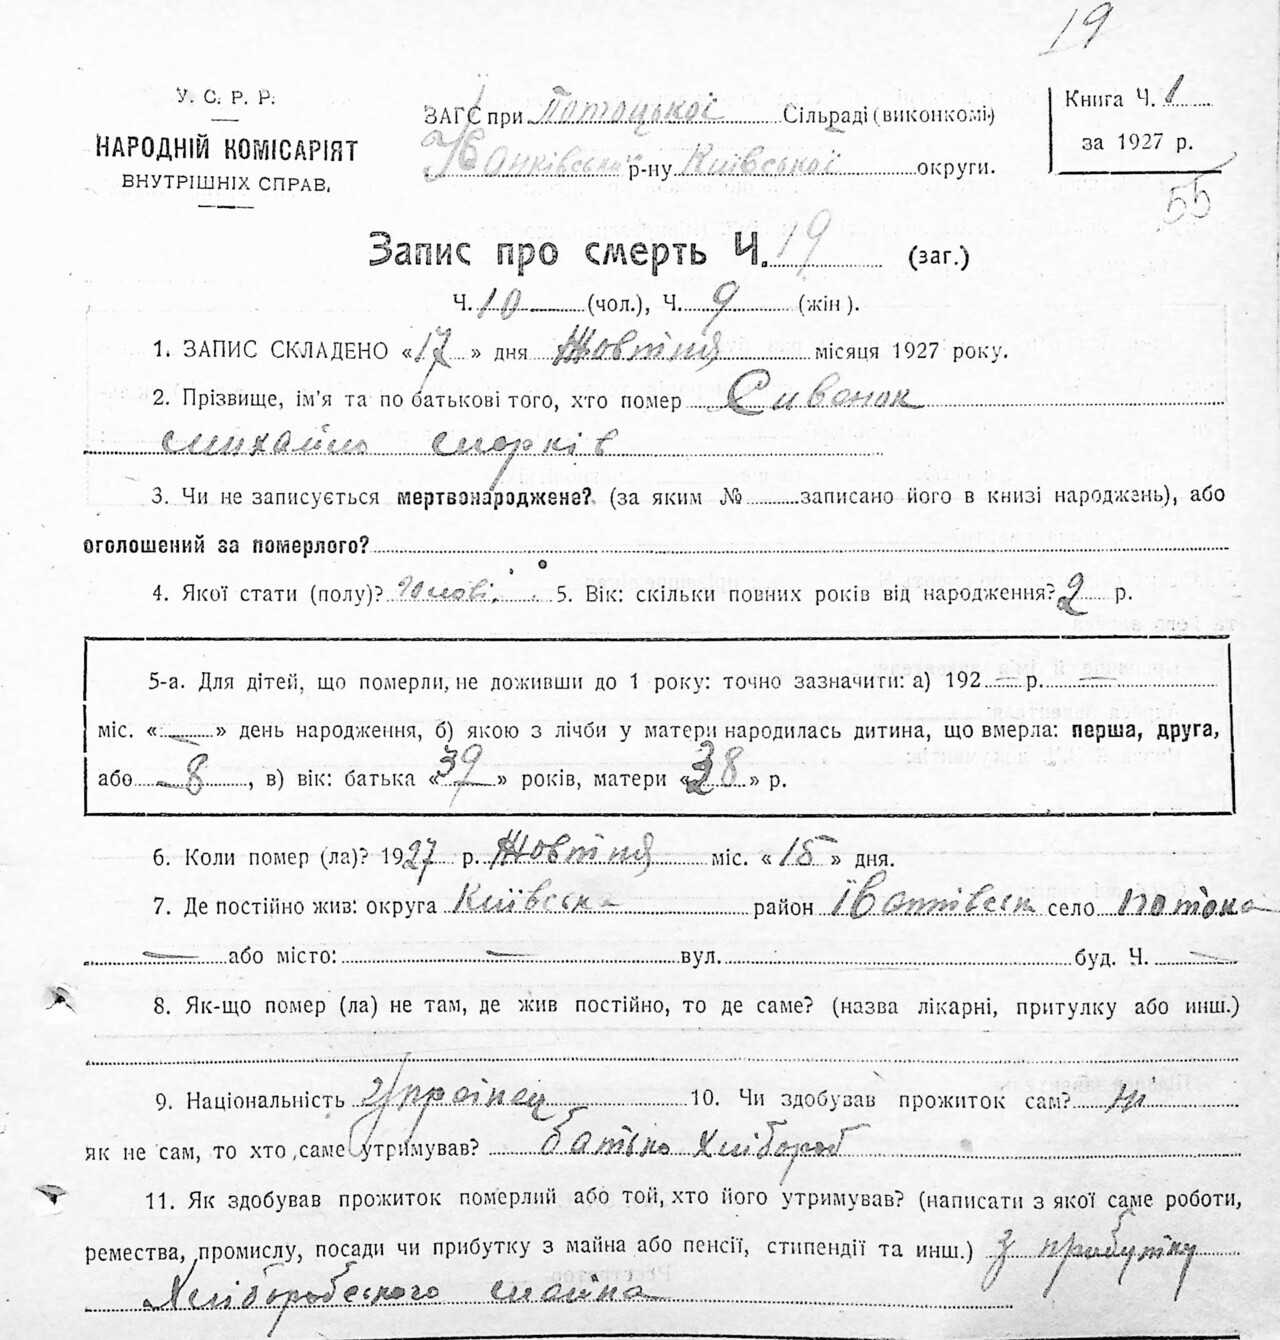 19
У. С. Р. Р.
НАРОДНІЙ КОМІСАРІЯТ
ВНУТРІШНІХ СПРАВ.
ЗАГС при Потоцької Сільраді (виконкомі)
р-ну Київської округи.
Книга Ч. 1
за 1927 р.
55
Запис про смерть Ч. 19 (заг.)
Ч. 10 (чол.), Ч. 9 (жін).
1. ЗАПИС СКЛАДЕНО «17» дня Жовтня місяця 1927 року.
2. Прізвище, ім'я та по батькові того, хто помер Сивонок
Михайло Марків
3. Чи не записується мертвонароджене? (за яким № записано його в книзі народжень), або
оголошений за померлого?
4. Якої стати (полу)? 5. Вік: скільки повних років від народження? 2 р.
5-а. Для дітей, що померли, не доживши до 1 року: точно зазначити: а) 192 — р. —
міс. « — » день народження, б) якою з лічби у матери народилась дитина, що вмерла: перша, друга,
або 8, в) вік: батька «39» років, матери «38» р.
6. Коли помер (ла)? 1927 р. Жовтня міс. «15» дня.
7. Де постійно жив: округа Київська район село Потока
— або місто: — вул. буд. Ч. —
8. Як-що помер (ла) не там, де жив постійно, то де саме? (назва лікарні, притулку або инш.)
9. Національність Українец 10. Чи здобував прожиток сам? Ні
як не сам, то хто саме утримував? батько Хлібороб
11. Як здобував прожиток померлий або той, хто його утримував? (написати з якої саме роботи,
ремества, промислу, посади чи прибутку з майна або пенсії, стипендії та инш.) З прибутку
Хліборобського майна